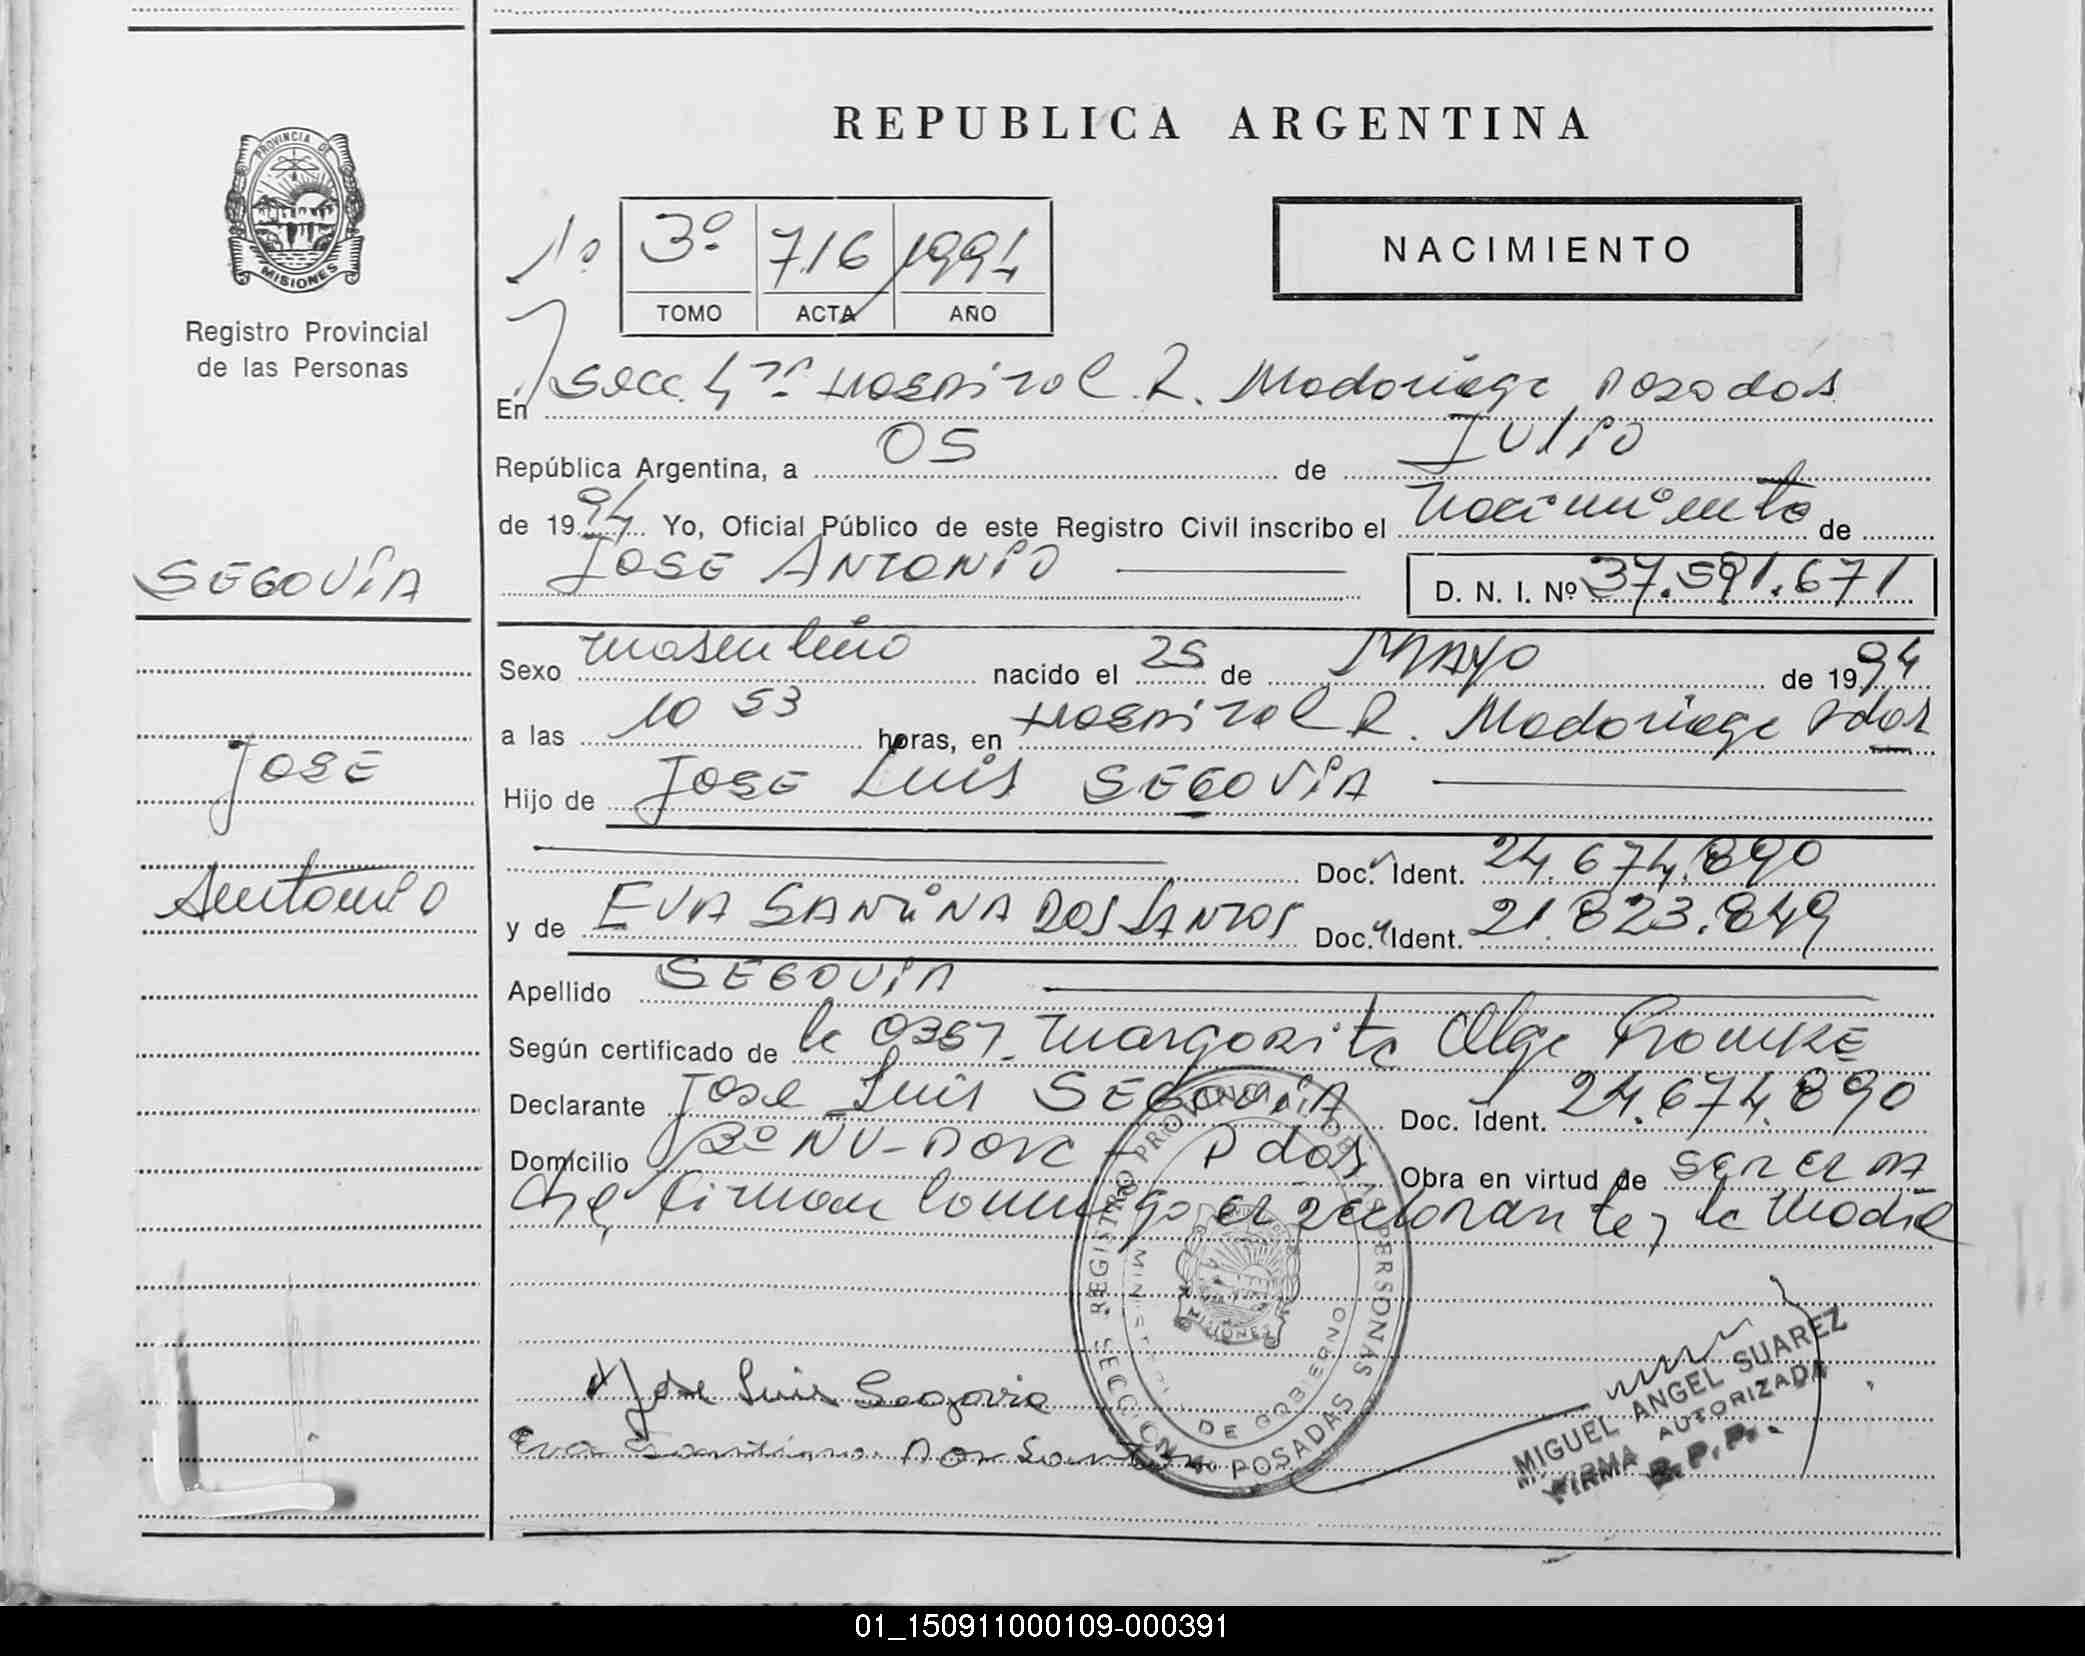 REPUBLICA ARGENTINA
PROVINCIA DE
MISIONES
Registro Provincial
de las Personas
1º
3º 716 1994
TOMO ACTA AÑO
NACIMIENTO
En Secc. 4ta Hospital R. Madariaga Posadas
República Argentina, a 05 de Julio
de 1994 Yo, Oficial Público de este Registro Civil inscribo el Nacimiento de
JOSE ANTONIO D. N. I. Nº 37.591.671
SEGOVIA
JOSE
Antonio
Sexo masculino nacido el 25 de MAYO de 1994
a las 10 53 horas, en Hospital R. Madariaga Pdas
Hijo de JOSE Luis SEGOVIA
Doc. Ident. 24.674.890
y de EVA SANTINA DOS SANTOS Doc. Ident. 21.823.849
Apellido SEGOVIA
Según certificado de la Obst. Margarita Olga
Declarante Jose Luis SEGOVIA Doc. Ident. 24.674.890
Domicilio Pdas Obra en virtud de ser el pa
dre, firman conmigo el declarante y la madre
REGISTRO PROVINCIAL DE LAS PERSONAS
MINISTERIO DE GOBIERNO
MISIONES
SECCION 4º POSADAS
Jose Luis Segovia
Eva Santina Dos Santos
MIGUEL ANGEL SUAREZ
FIRMA AUTORIZADA
R.P.P.
01_150911000109-000391